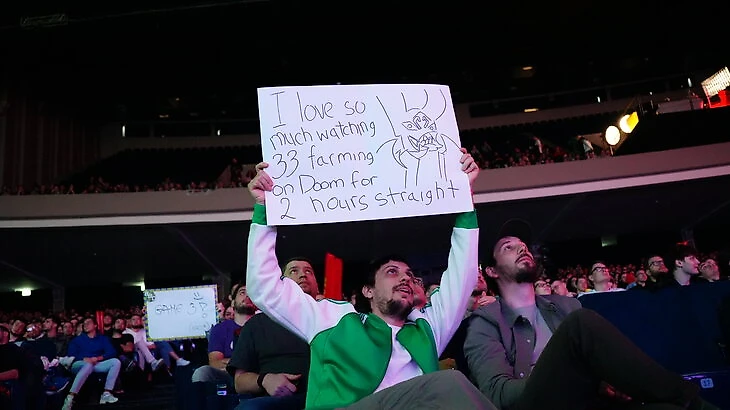 I love so
much watching
33 farming
on Doom for
2 hours straight
GAME 3?